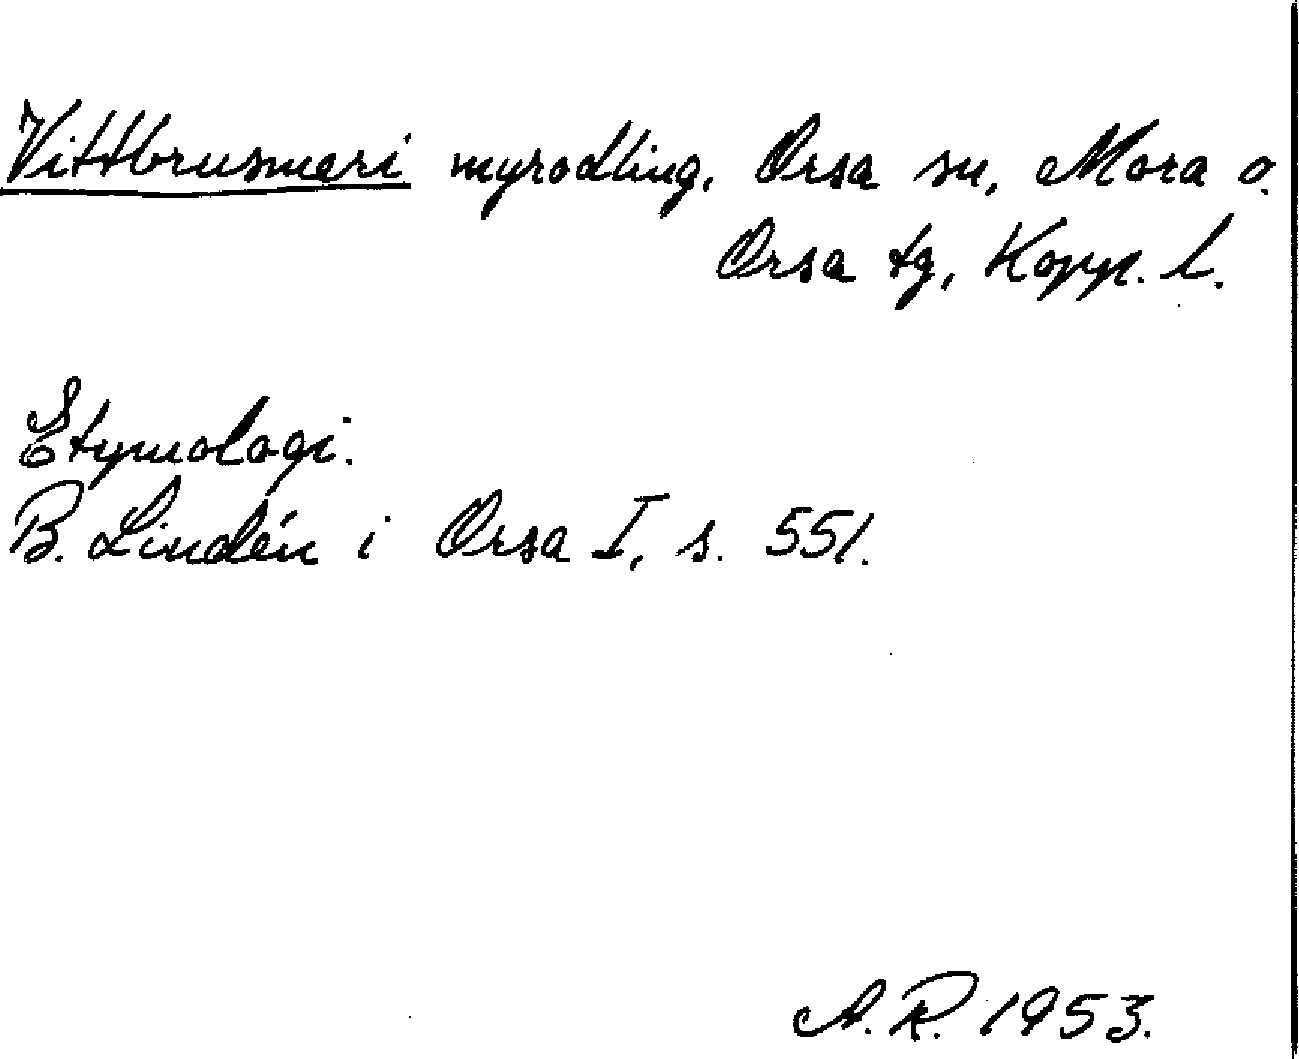 Vittbrusmeri myrodling, Orsa sn, Mora o.
Orsa tg, Kopp. l.
Etymologi.
B. Lindén i Orsa I, s. 551.
A. R. 1953.